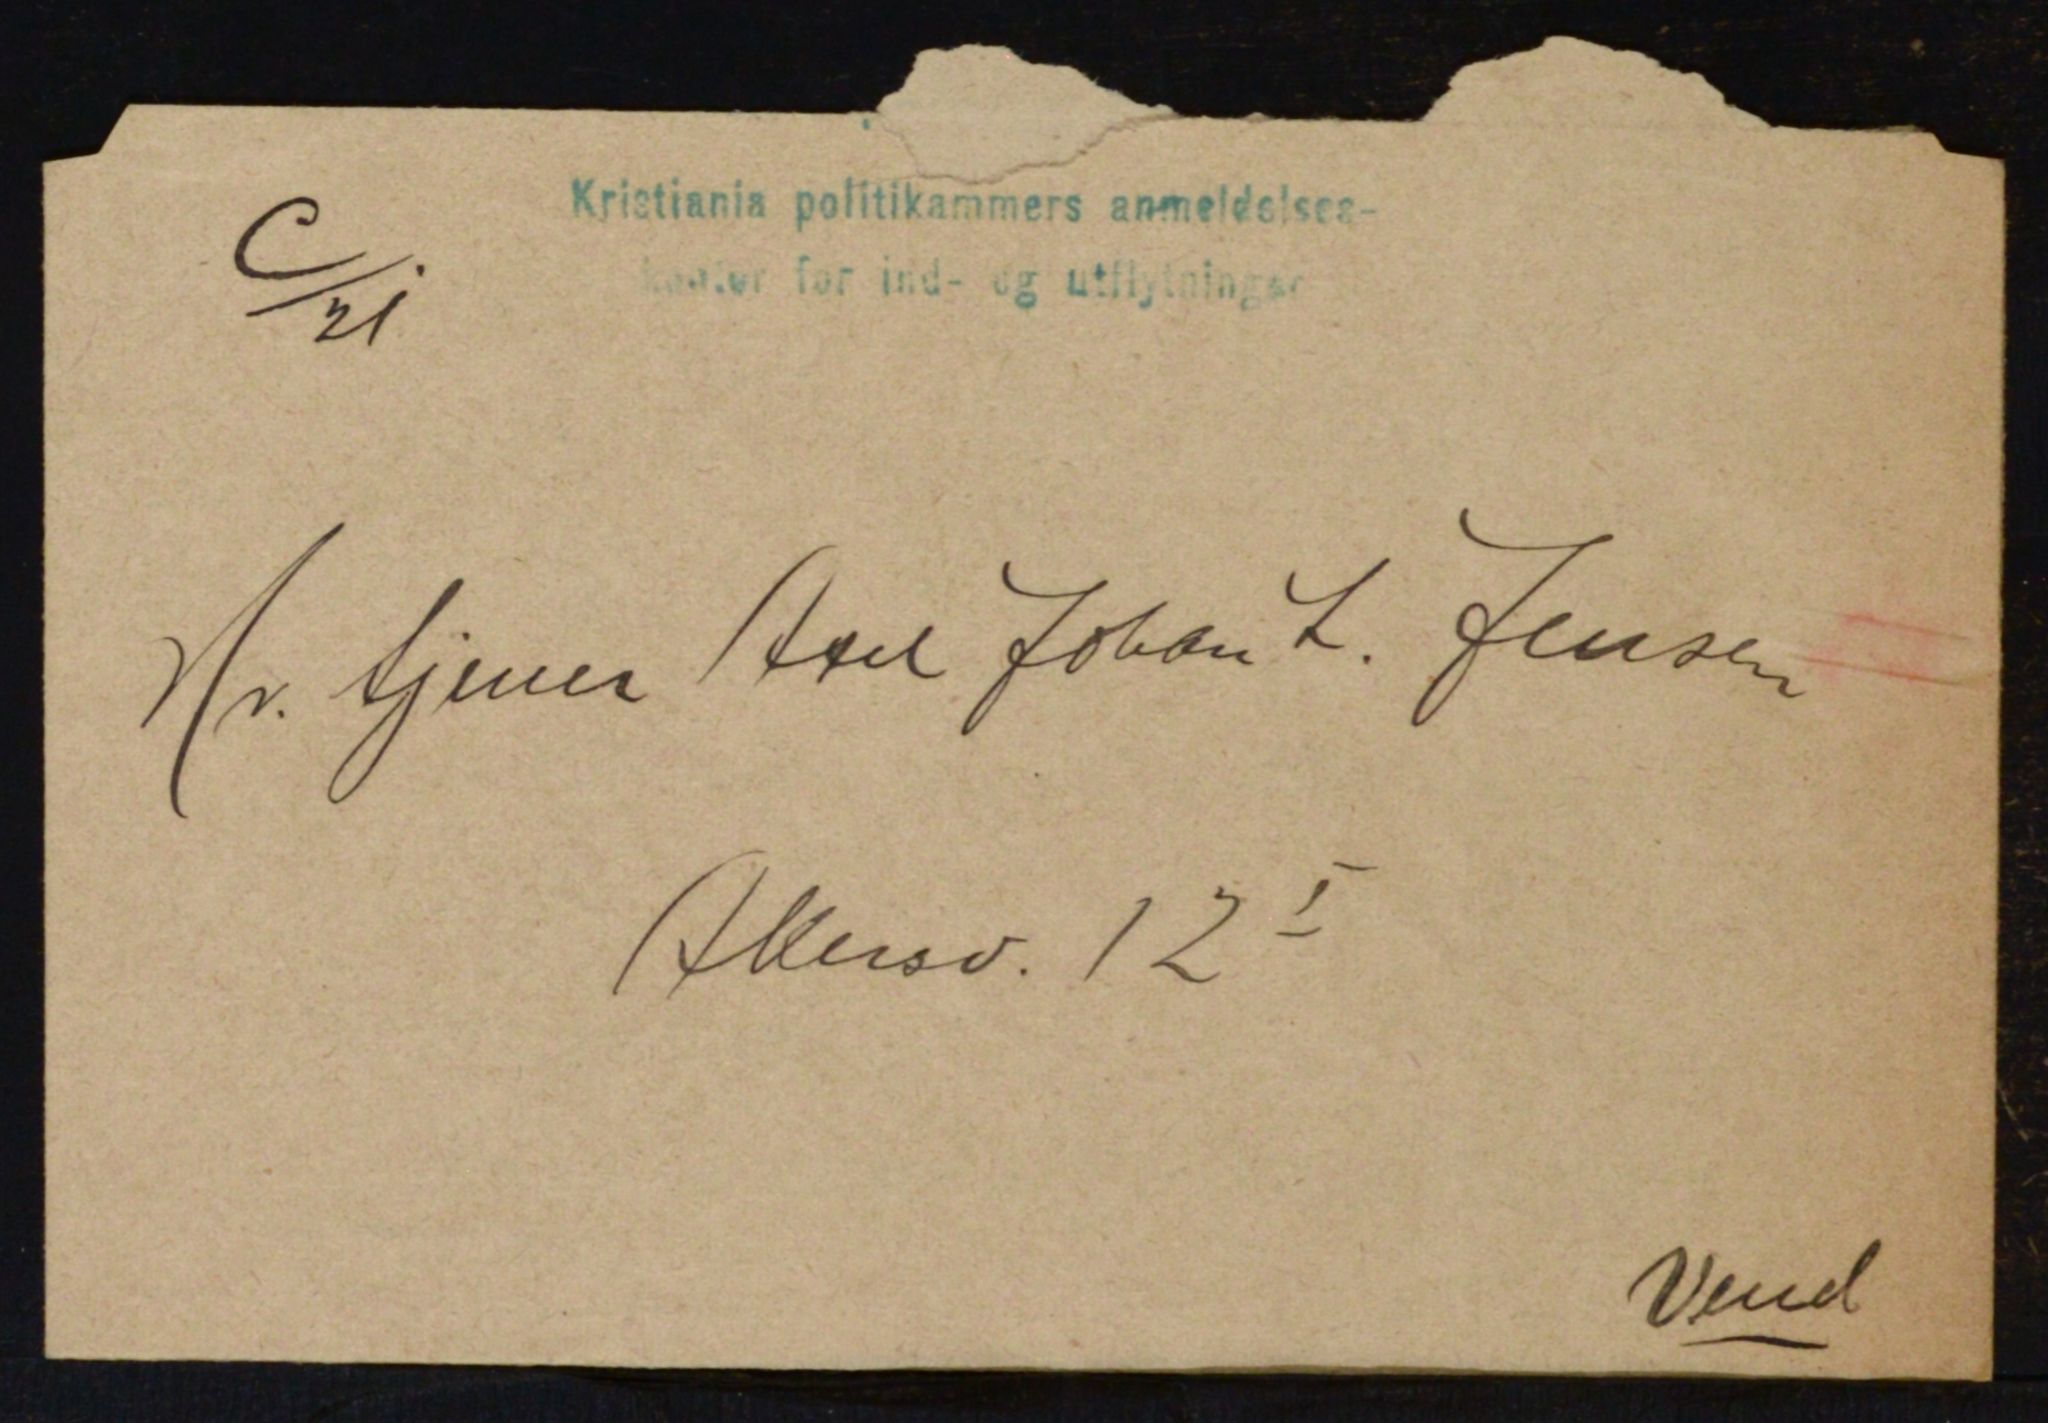 Kristiania politikammers anmeldelses-
kontor for ind- og utflytninger
C/21
Hr. tjener Axel Johan L. Jensen
Akersv. 12 I
Vend